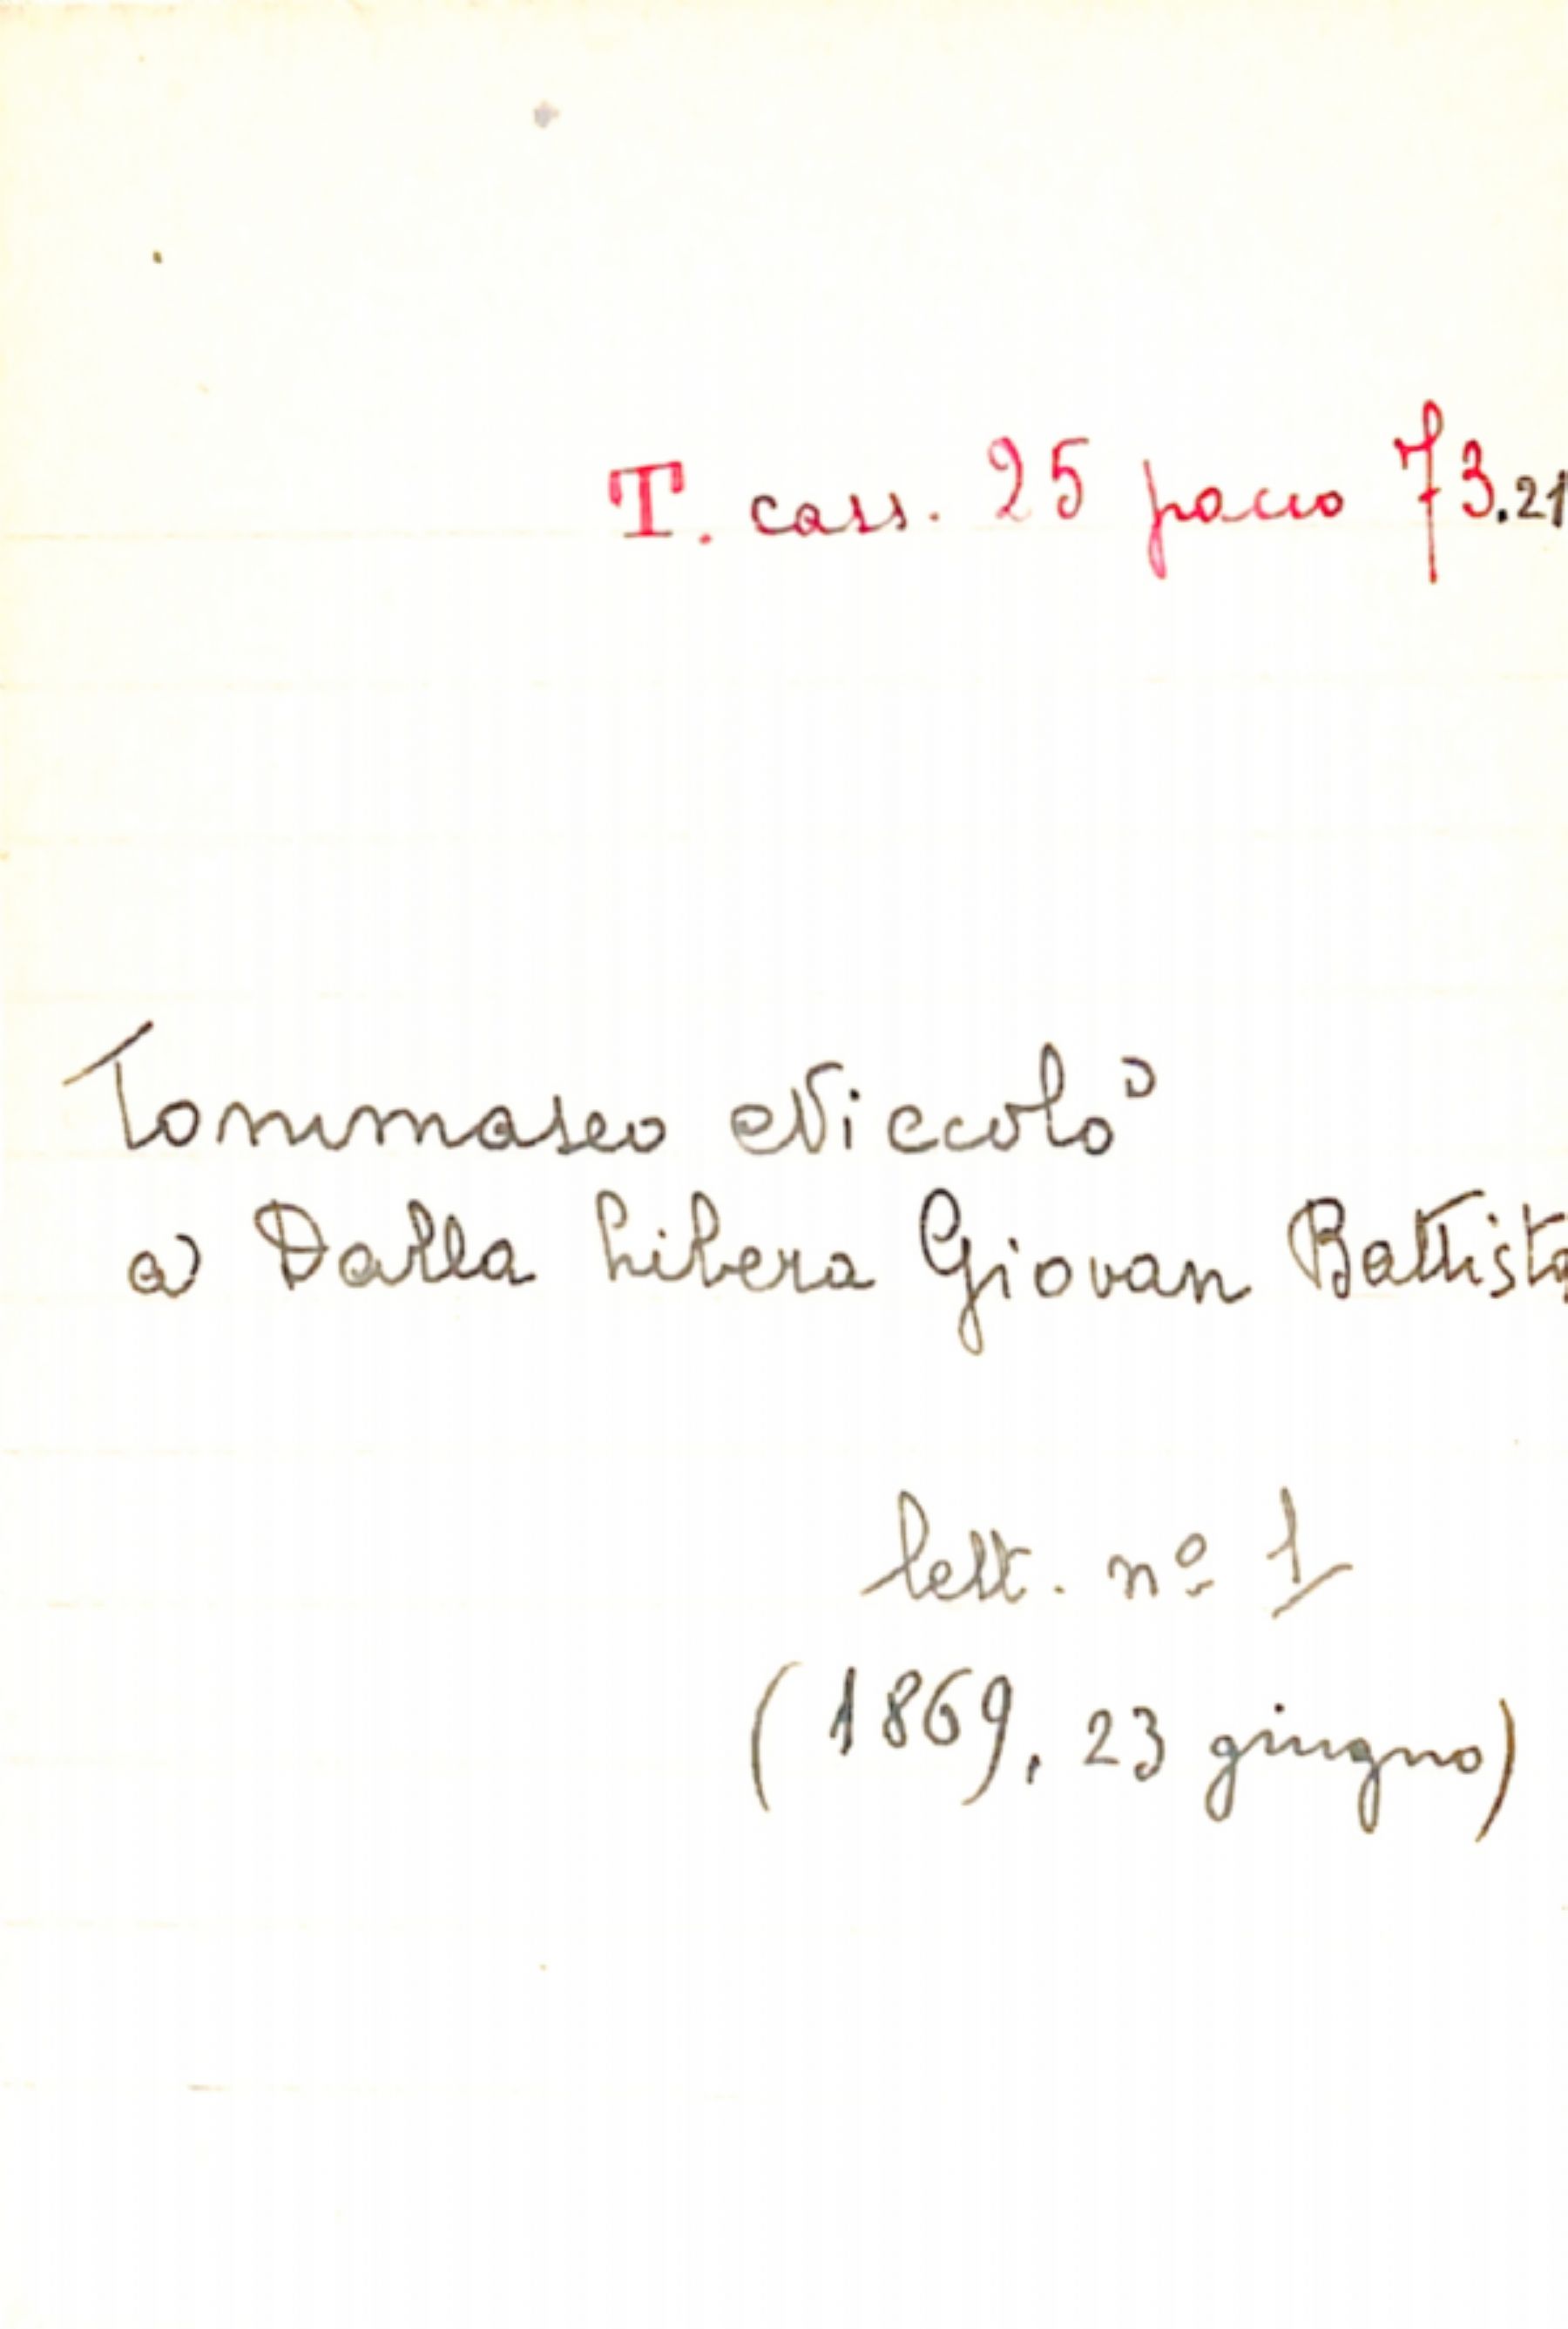 T. cass. 25 pacco 73.21
Tommaseo Niccolò
a Dalla Libera Giovan Battista
lett. nº 1
(1869, 23 giugno)